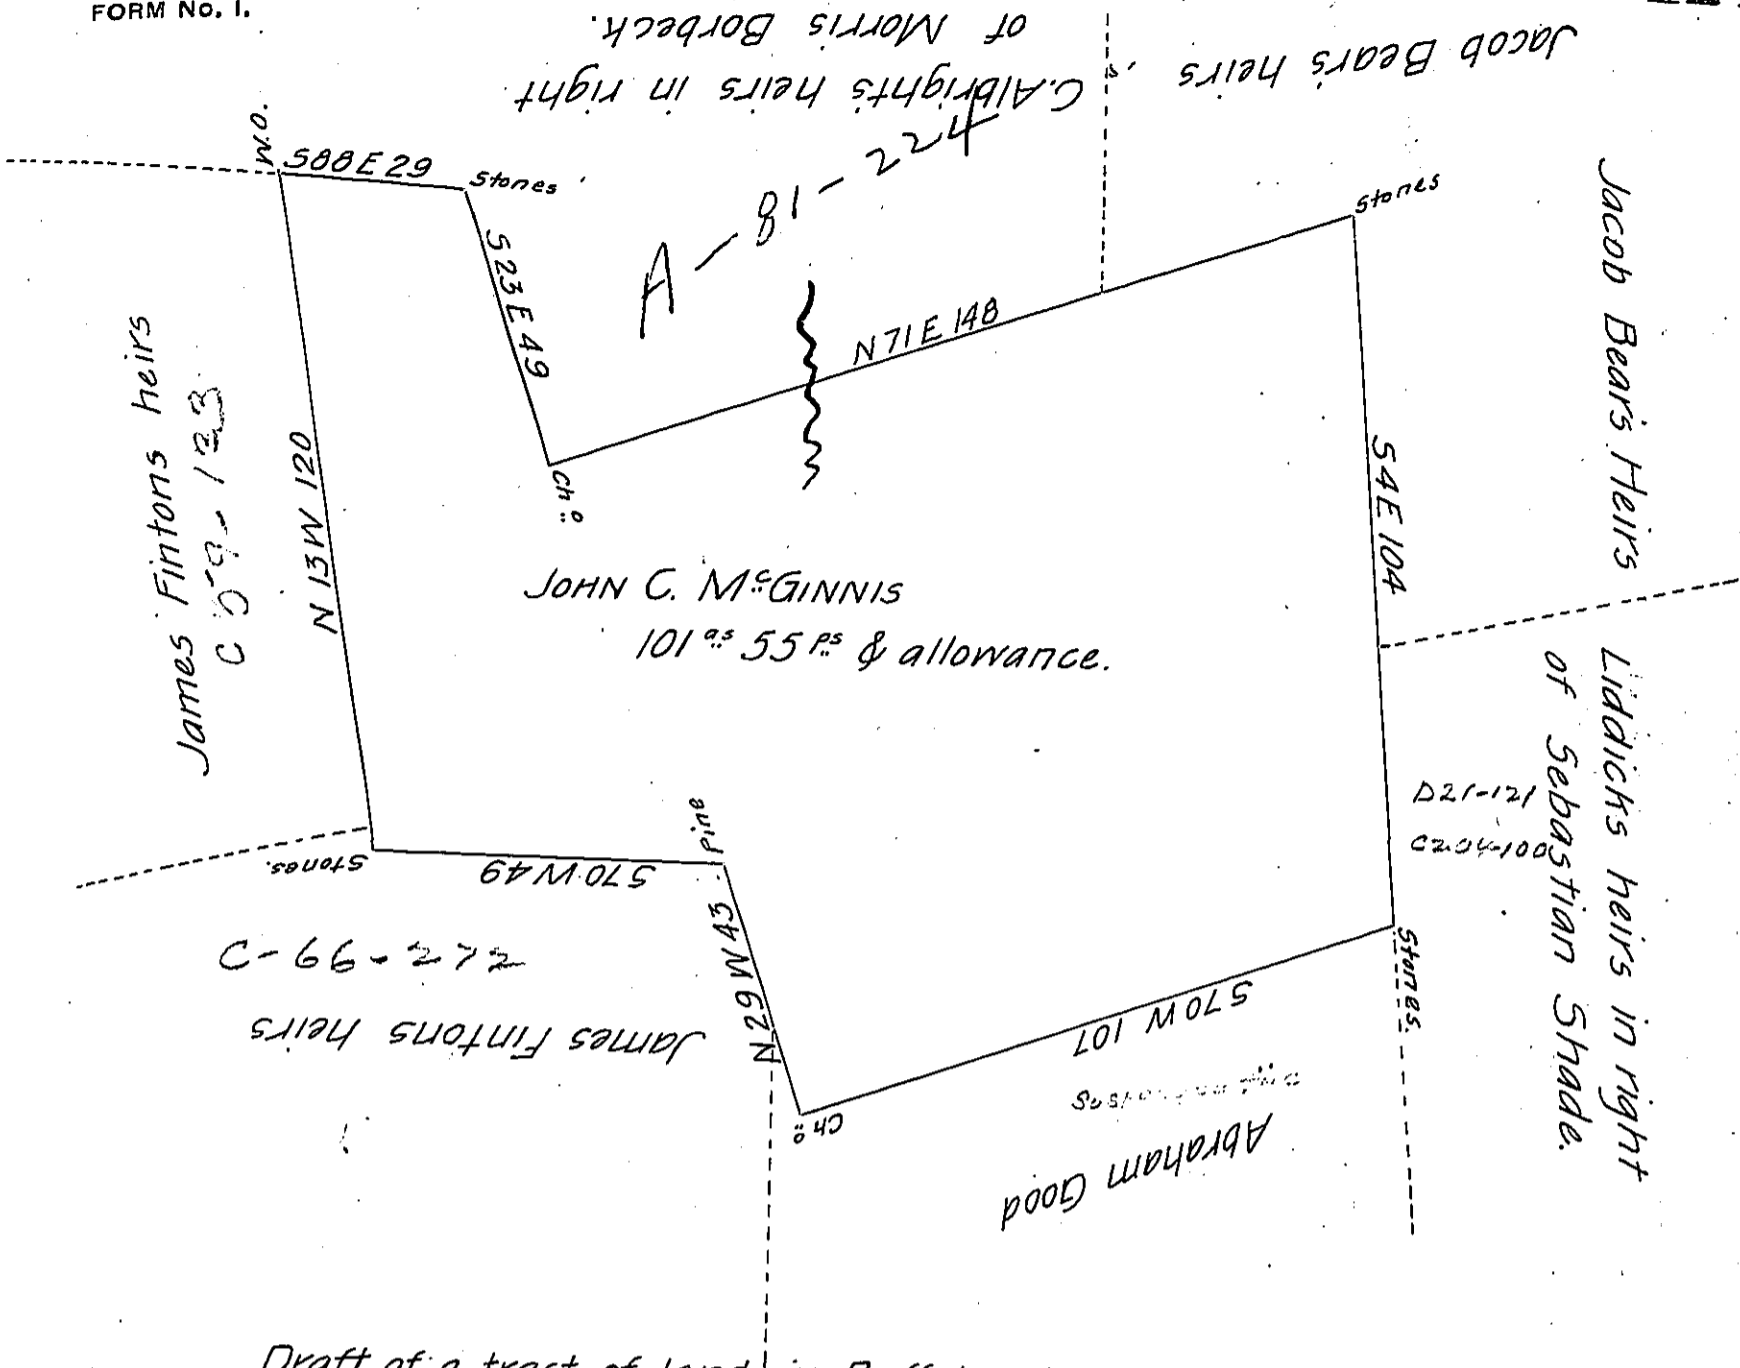 FORM No. 1.
C. Albright's heirs in right
of Morris Borbeck.
Jacob Bears heirs
W.O.
S88E 29
Stones
S23E 49
A-81-224
N71E 148
Stones
Ch:o
Jacob Bears Heirs
S4E 104
James Fintons heirs
N 13W 120
JOHN C. McGINNIS
101 as 55 ps & allowance.
Liddicks heirs in right
of Sebastian Shade.
D21-121
Stones.
S70W 49
Pine
C-66-272
James Fintons heirs
N29W 43
Ch:o
S70W 107
Stones.
Abraham Good
Draft of a tract of land in